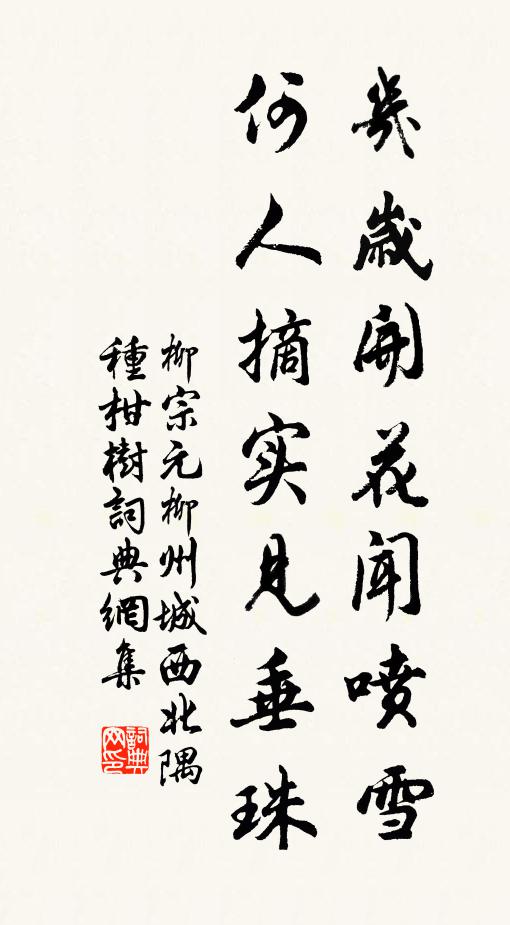 幾歲開花聞噴雪
何人摘实見垂珠
柳宗元柳州城西北隅
種柑樹詞典網集
詞典网印